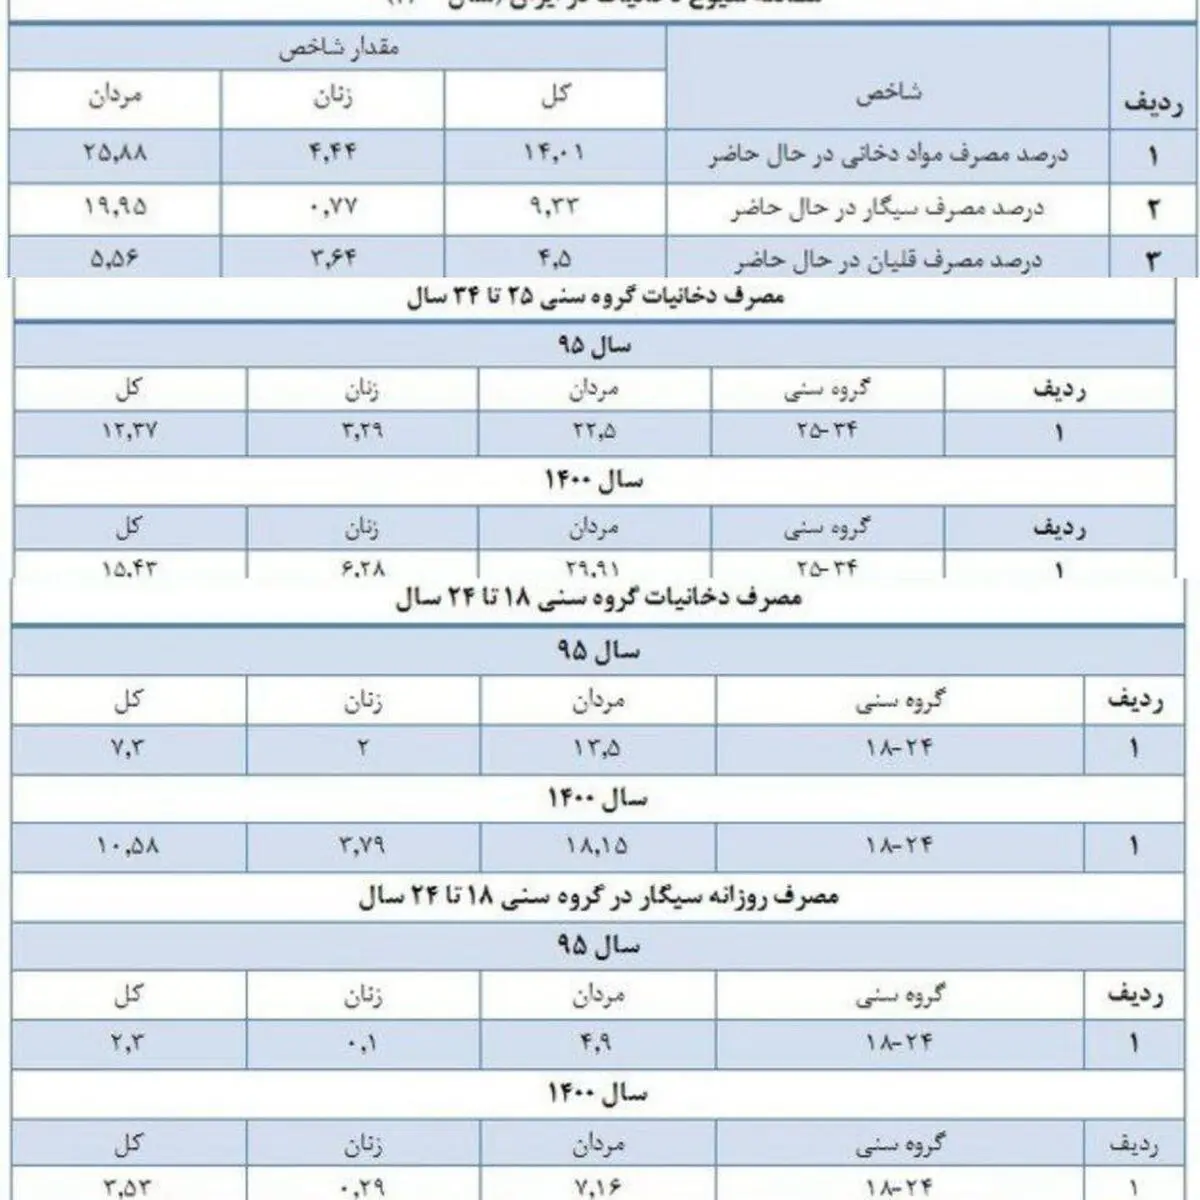 مقدار شاخص
ردیف شاخص کل زنان مردان
۱ درصد مصرف مواد دخانی در حال حاضر ۱۴,۰۱ ۴,۴۴ ۲۵,۸۸
۲ درصد مصرف سیگار در حال حاضر ۹,۳۳ ۰,۷۷ ۱۹,۹۵
۳ درصد مصرف قلیان در حال حاضر ۴,۵ ۳,۶۴ ۵,۵۶
مصرف دخانیات گروه سنی ۲۵ تا ۳۴ سال
سال ۹۵
ردیف گروه سنی مردان زنان کل
۱ ۲۵-۳۴ ۲۲,۵ ۳,۲۹ ۱۲,۳۷
سال ۱۴۰۰
ردیف گروه سنی مردان زنان کل
۱ ۲۵-۳۴ ۲۹,۹۱ ۶,۲۸ ۱۵,۴۳
مصرف دخانیات گروه سنی ۱۸ تا ۲۴ سال
سال ۹۵
ردیف گروه سنی مردان زنان کل
۱ ۱۸-۲۴ ۱۳,۵ ۲ ۷,۳
سال ۱۴۰۰
۱ ۱۸-۲۴ ۱۸,۱۵ ۳,۷۹ ۱۰,۵۸
مصرف روزانه سیگار در گروه سنی ۱۸ تا ۲۴ سال
سال ۹۵
ردیف گروه سنی مردان زنان کل
۱ ۱۸-۲۴ ۴,۹ ۰,۱ ۲,۳
سال ۱۴۰۰
ردیف گروه سنی مردان زنان کل
۱ ۱۸-۲۴ ۷,۱۶ ۰,۲۹ ۳,۵۳